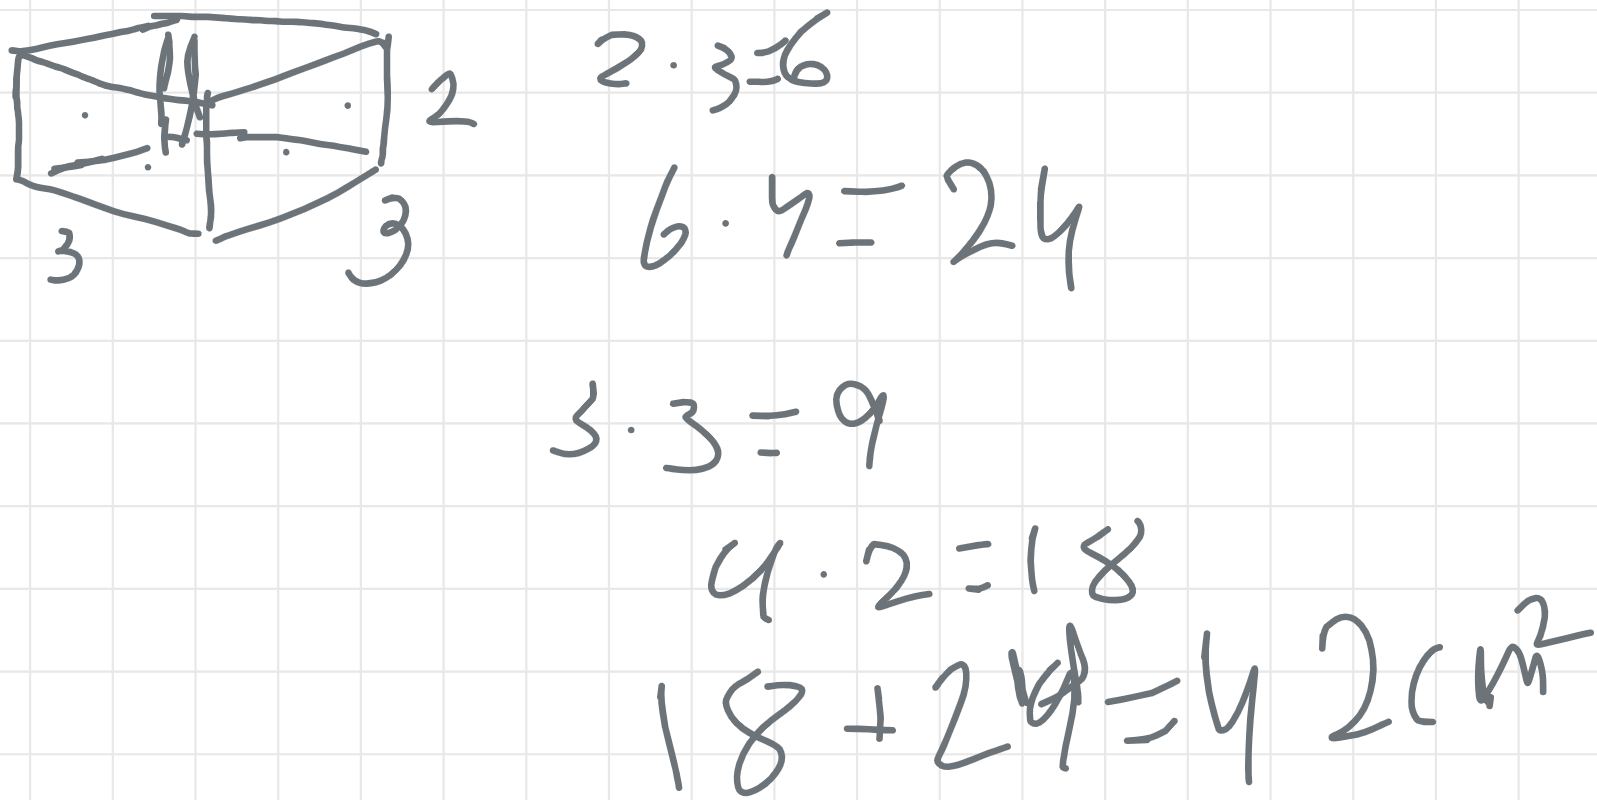 2
3
3
2 · 3 = 6
6 · 4 = 24
3 · 3 = 9
9 · 2 = 18
18 + 24 = 42cm²